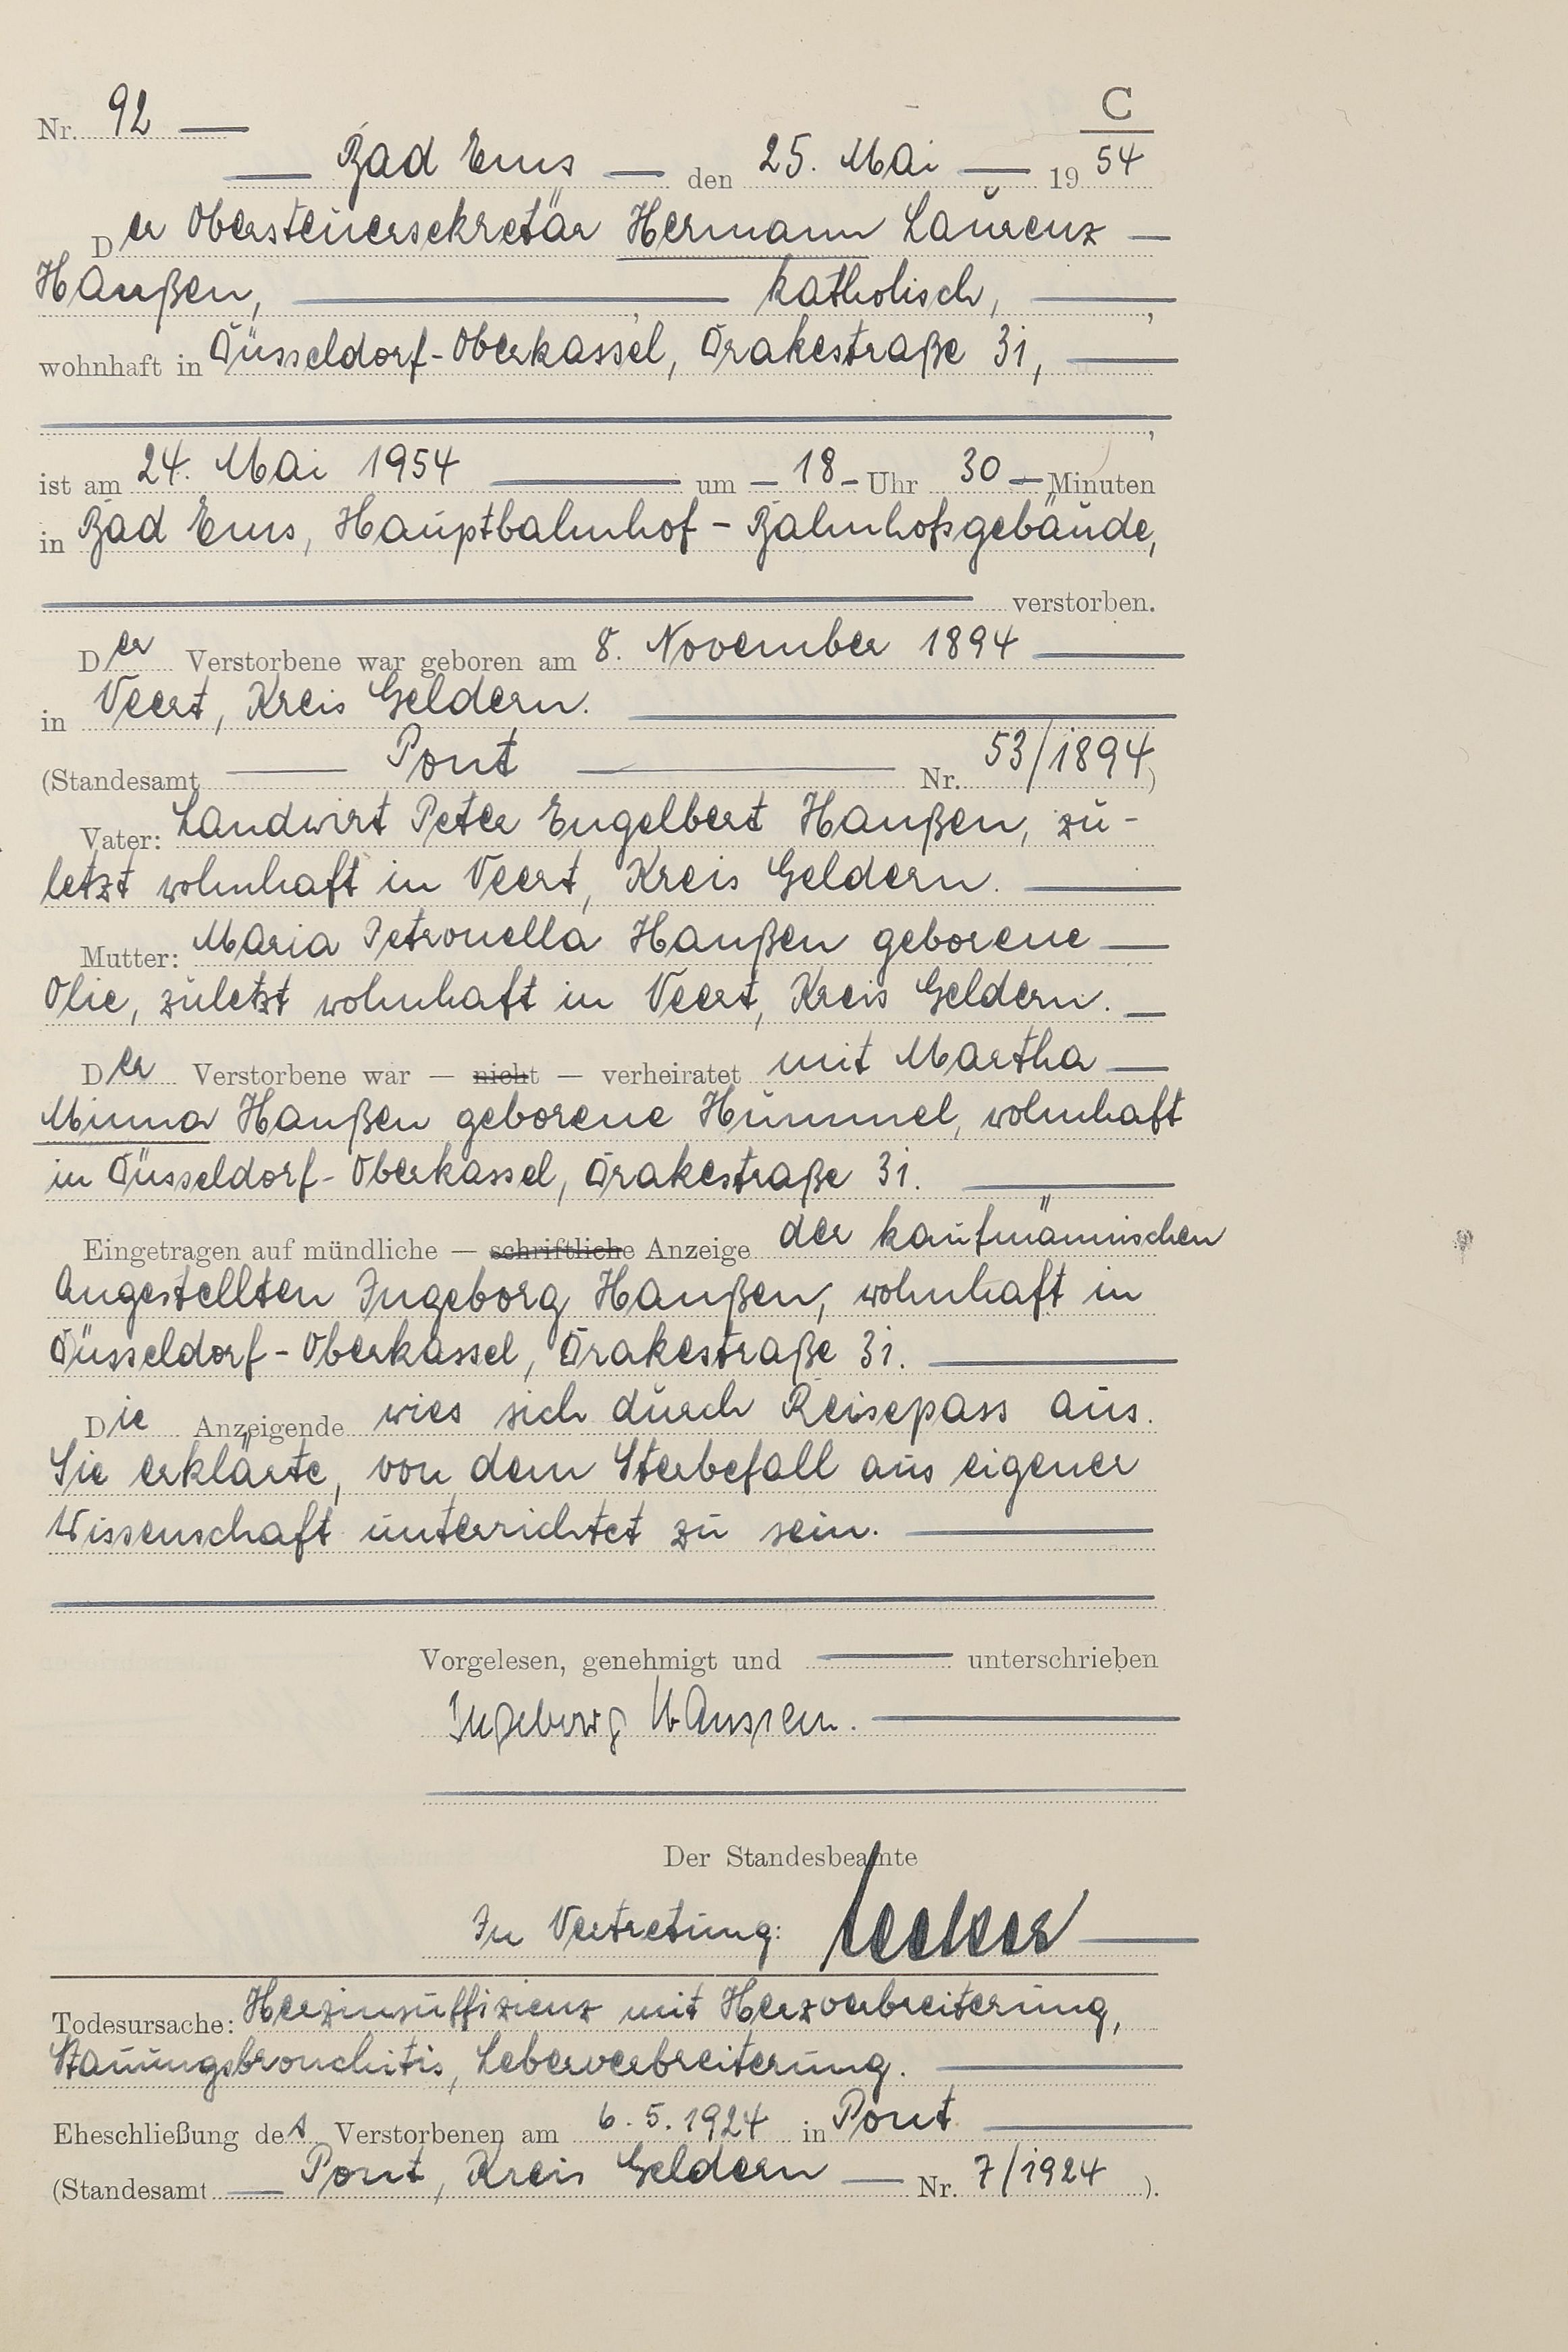 C
Nr. 92 —
— Bad Ems — den 25. Mai — 19 54
Der Obersteuersekretär Hermann Laurenz —
Haußen, — katholisch, —
wohnhaft in Düsseldorf-Oberkassel, Drakestraße 31, —
ist am 24. Mai 1954 — um — 18 - Uhr 30 — Minuten
in Bad Ems, Hauptbahnhof - Bahnhofsgebäude,
— verstorben.
Der Verstorbene war geboren am 8. November 1894 —
in Veert, Kreis Geldern. —
(Standesamt — Pont — Nr. 53/1894)
Vater: Landwirt Peter Engelbert Haußen, zu-
letzt wohnhaft in Veert, Kreis Geldern. —
Mutter: Maria Petronella Haußen geborene —
Olie, zuletzt wohnhaft in Veert, Kreis Geldern. —
Der Verstorbene war — nicht — verheiratet mit Martha —
Minna Haußen geborene Hummel, wohnhaft
in Düsseldorf-Oberkassel, Drakestraße 31. —
Eingetragen auf mündliche — schriftliche Anzeige der kaufmännischen
Angestellten Ingeborg Haußen, wohnhaft in
Düsseldorf-Oberkassel, Drakestraße 31. —
Die Anzeigende wies sich durch Reisepass aus.
Sie erklärte, von dem Sterbefall aus eigener
Wissenschaft unterrichtet zu sein. —
Vorgelesen, genehmigt und — unterschrieben
Ingeborg Haussen. —
Der Standesbeamte
In Vertretung:
Todesursache: Herzinsuffizienz mit Herzverbreiterung,
Stauungsbronchitis, Leberverbreiterung. —
Eheschließung des Verstorbenen am 6.5.1924 in Pont —
(Standesamt — Pont, Kreis Geldern — Nr. 7/1924).